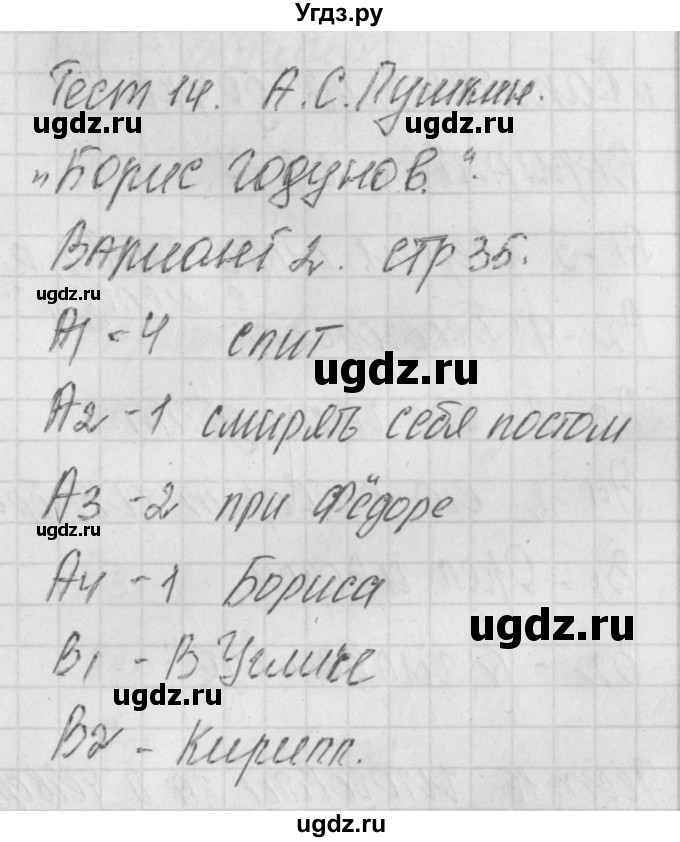 Угдз.ру
Тест 14. А.С.Пушкин.
ugdz.ru ugdz.ru
"Борис Годунов."
Вариант 2. стр 35.
ugdz.ru
А1 - 4 спит
ugdz.ru
А2 - 1 смирять себя постом
А3 - 2 при Фёдоре
ugdz.ru
А4 - 1 Бориса
ugdz.ru
В1 - В Угличе
ugdz.ru
В2 - Кирилл.
ugdz.ru